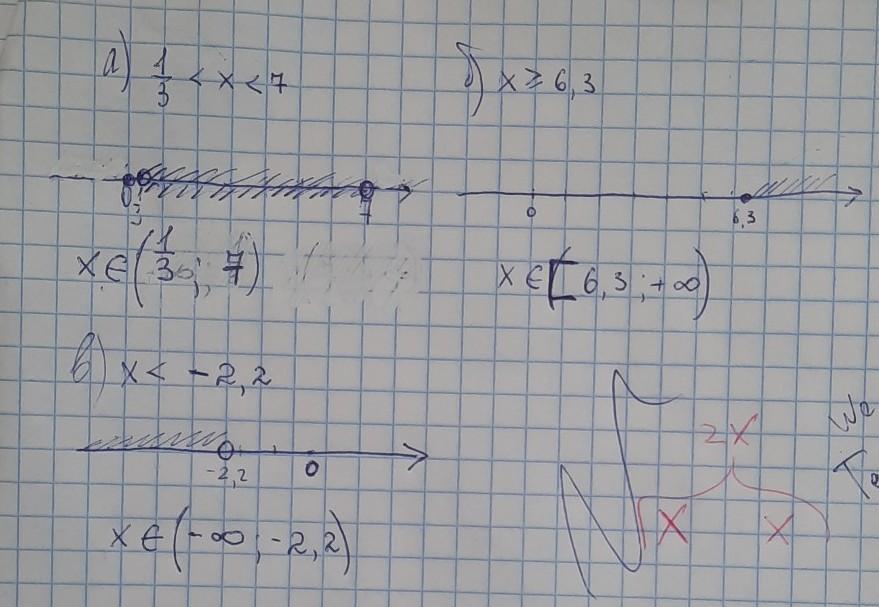 а) 1/3 < x < 7
0 1/3 7
x ∈ (1/3; 7)
б) x ≥ 6,3
0 6,3
x ∈ [6,3; +∞)
в) x < -2,2
-2,2 0
x ∈ (-∞; -2,2)
2x
x x